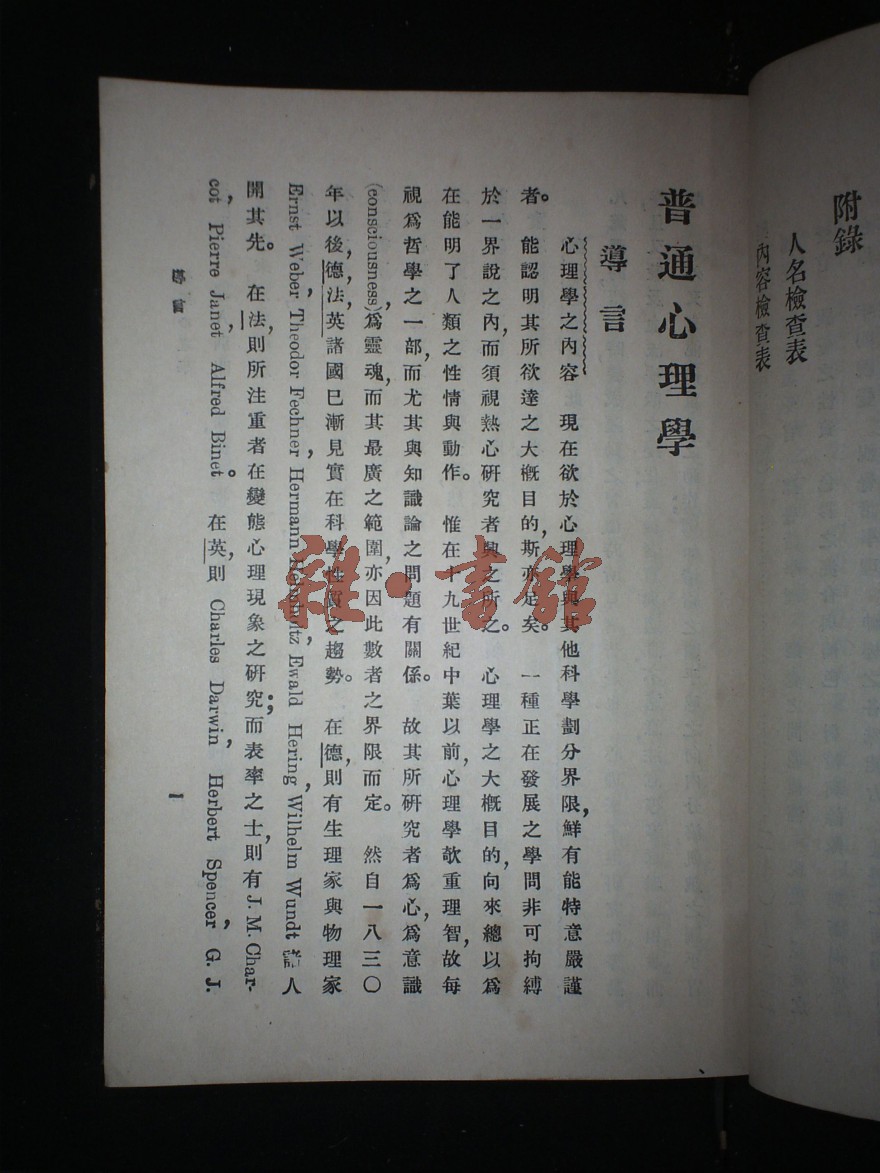 附錄
人名檢查表
內容檢查表
普通心理學
導言
心理學之內容 現在欲於心理學與其他科學劃分界限,鮮有能特意嚴謹
者。 能認明其所欲達之大概目的,斯亦足矣。 一種正在發展之學問非可拘縛
於一界說之內,而須視熱心研究者興之所之。 心理學之大概目的,向來總以爲
在能明了人類之性情與動作。 惟在十九世紀中葉以前,心理學欹重理智,故每
視爲哲學之一部,而尤其與知識論之問題有關係。 故其所研究者爲心,爲意識
(consciousness),爲靈魂,而其最廣之範圍,亦因此數者之界限而定。 然自一八三〇
年以後,德,法,英諸國已漸見實在科學性質之趨勢。 在德,則有生理家與物理家
Ernst Weber, Theodor Fechner, Hermann Helmholtz, Ewald Hering, Wilhelm Wundt 諸人
開其先。 在法,則所注重者在變態心理現象之研究;而表率之士,則有 J. M. Char-
cot, Pierre Janet, Alfred Binet。 在英,則 Charles Darwin, Herbert Spencer, G. J.
導言
一
雜·書館